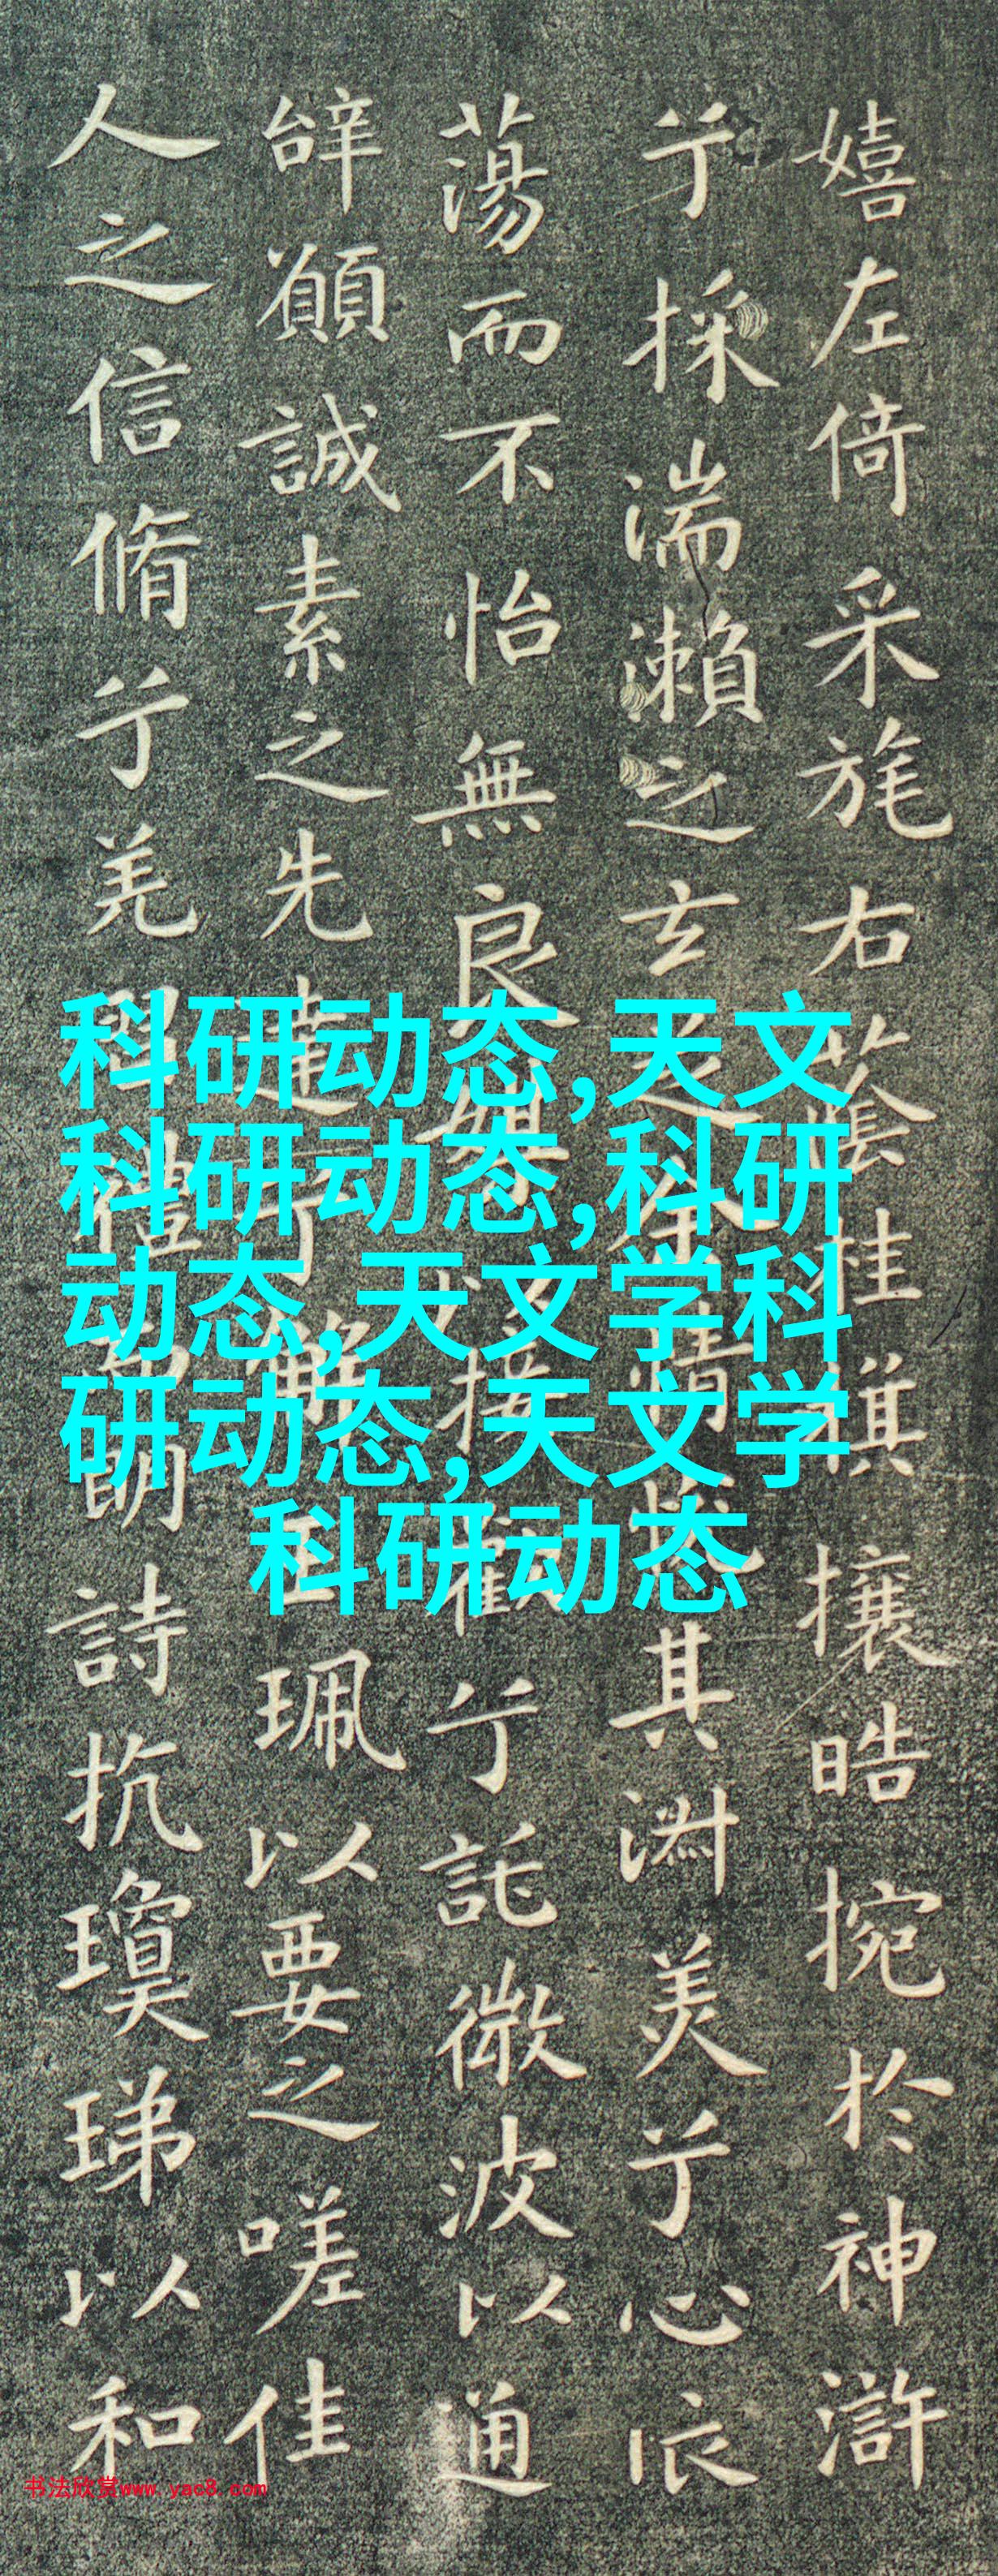 嬉左倚采旄右蔭桂旗攘皓捥於神滸
兮採湍瀨之玄芝余情悅其淑美兮心振
蕩而不怡無良媒以接歡兮託微波以通
辭願誠素之先達兮解玉珮以要之嗟佳
人之信脩兮羌習禮而明詩抗瓊珶以和
科研动态,天文
科研动态,科研
动态,天文学科
研动态,天文学
科研动态
书法欣赏www.yac8.com